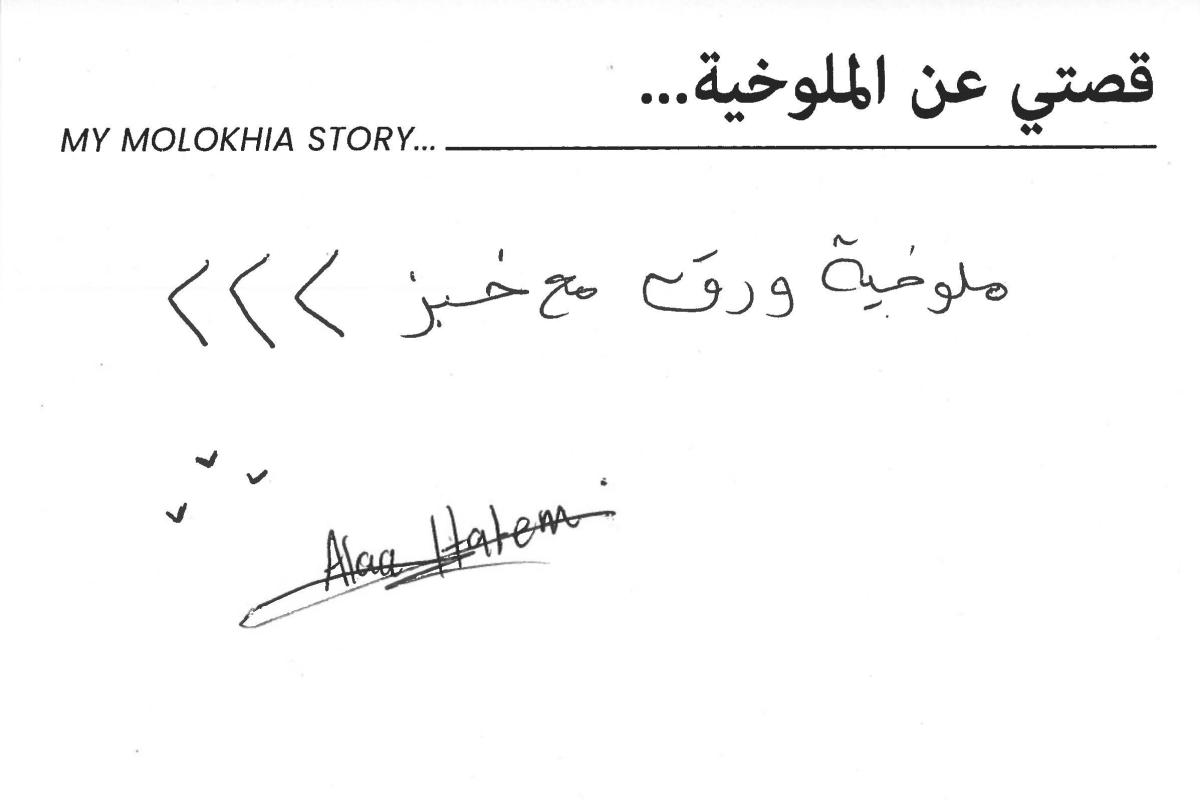 قصتي عن الملوخية...
MY MOLOKHIA STORY...
ملوخية ورق مع خبز >>>
Alaa Hatem